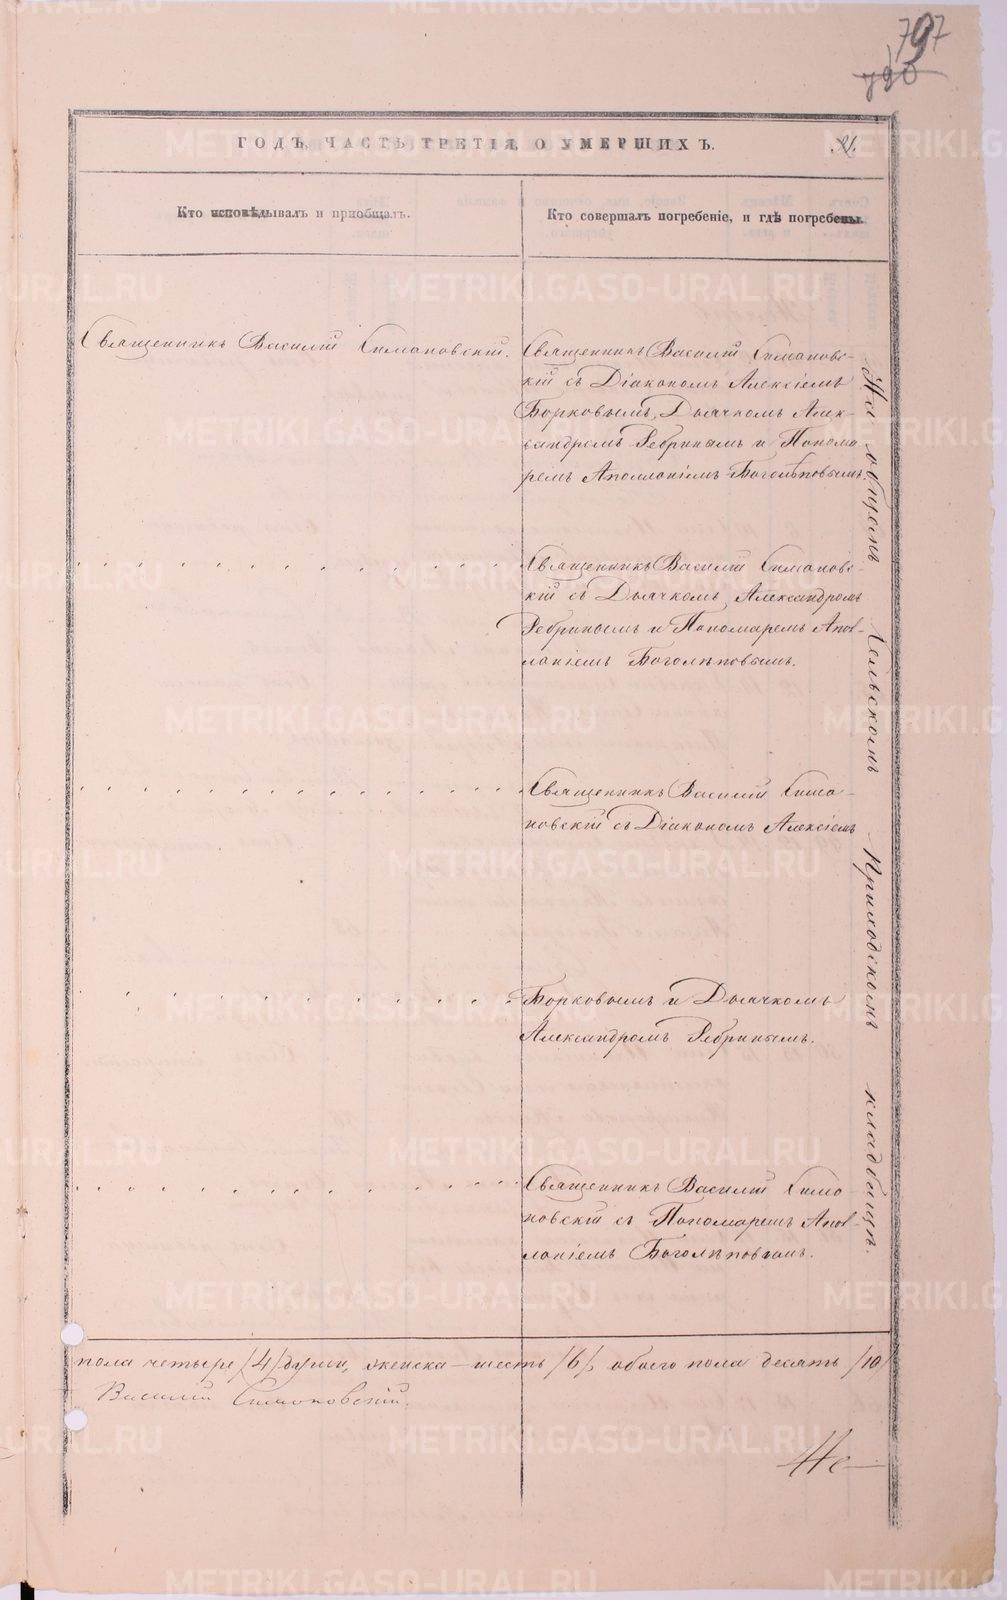 797
790
ГОДЪ, ЧАСТЬ ТРЕТІЯ, О УМЕРШИХЪ.
Кто исповѣдывалъ и пріобщалъ.
Кто совершалъ погребеніе, и гдѣ погребены.
Священникъ Василій Симановскій.
Священникъ Василій Симановс-
кій съ Діакономъ Алексіемъ
Борковымъ, Дьячкомъ Алек-
сандромъ Ребринымъ и Понома
ремъ Аполлоніемъ Боголѣповымъ.
Священникъ Василій Симановс-
кій съ Дьячкомъ, Александромъ
Ребринымъ и Пономаремъ Апол-
лоніемъ Боголѣповымъ.
Священникъ Василій Сима-
новскій съ Діакономъ Алексіемъ
Борковымъ и Дьячкомъ
Александромъ Ребринымъ.
Священникъ Василій Симо
новскій съ Пономаремъ Апол-
лоніемъ Боголѣповымъ.
На общемъ Сельскомъ Приходскомъ кладбищѣ.
пола четыре /4/ души, женска – шесть /6/, обоего пола десять /10/
Василій Симановскій.
METRIKI.GASO-URAL.RU